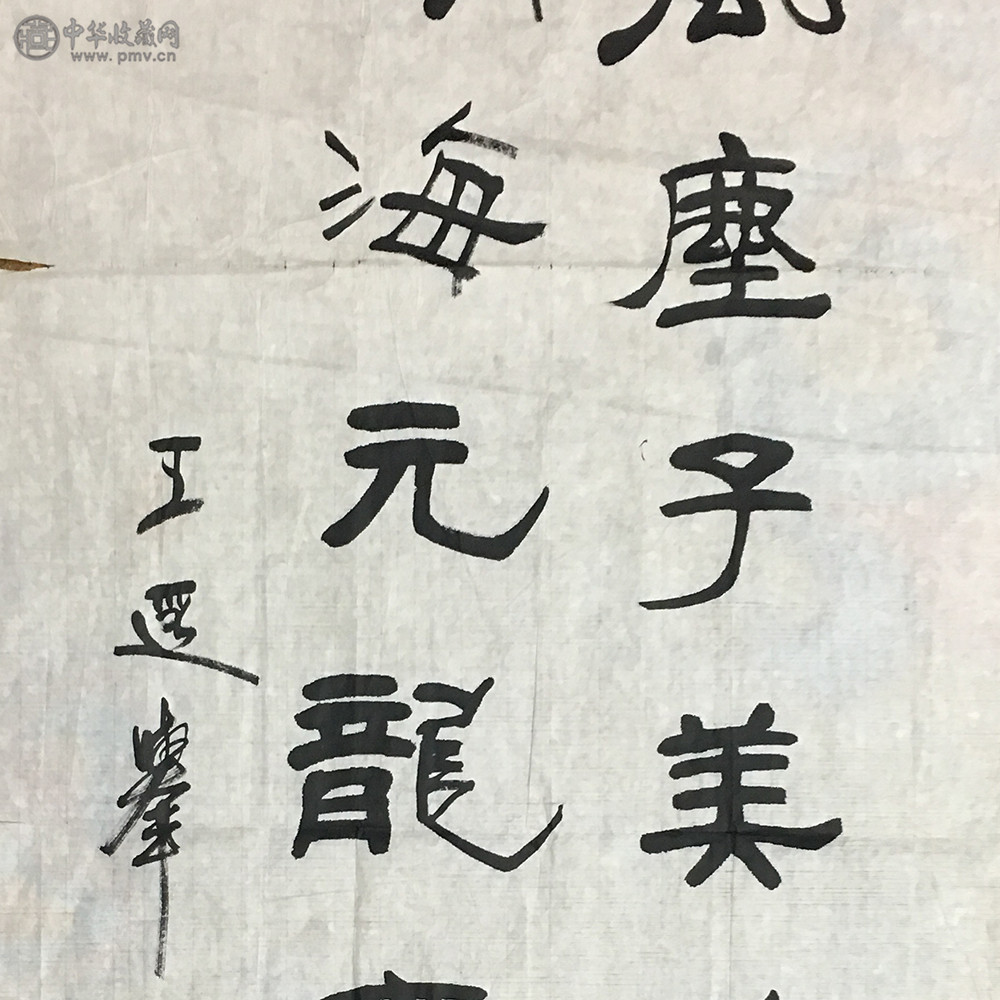 中华收藏网
www.pmv.cn
風塵子美
海元龍
王遐舉